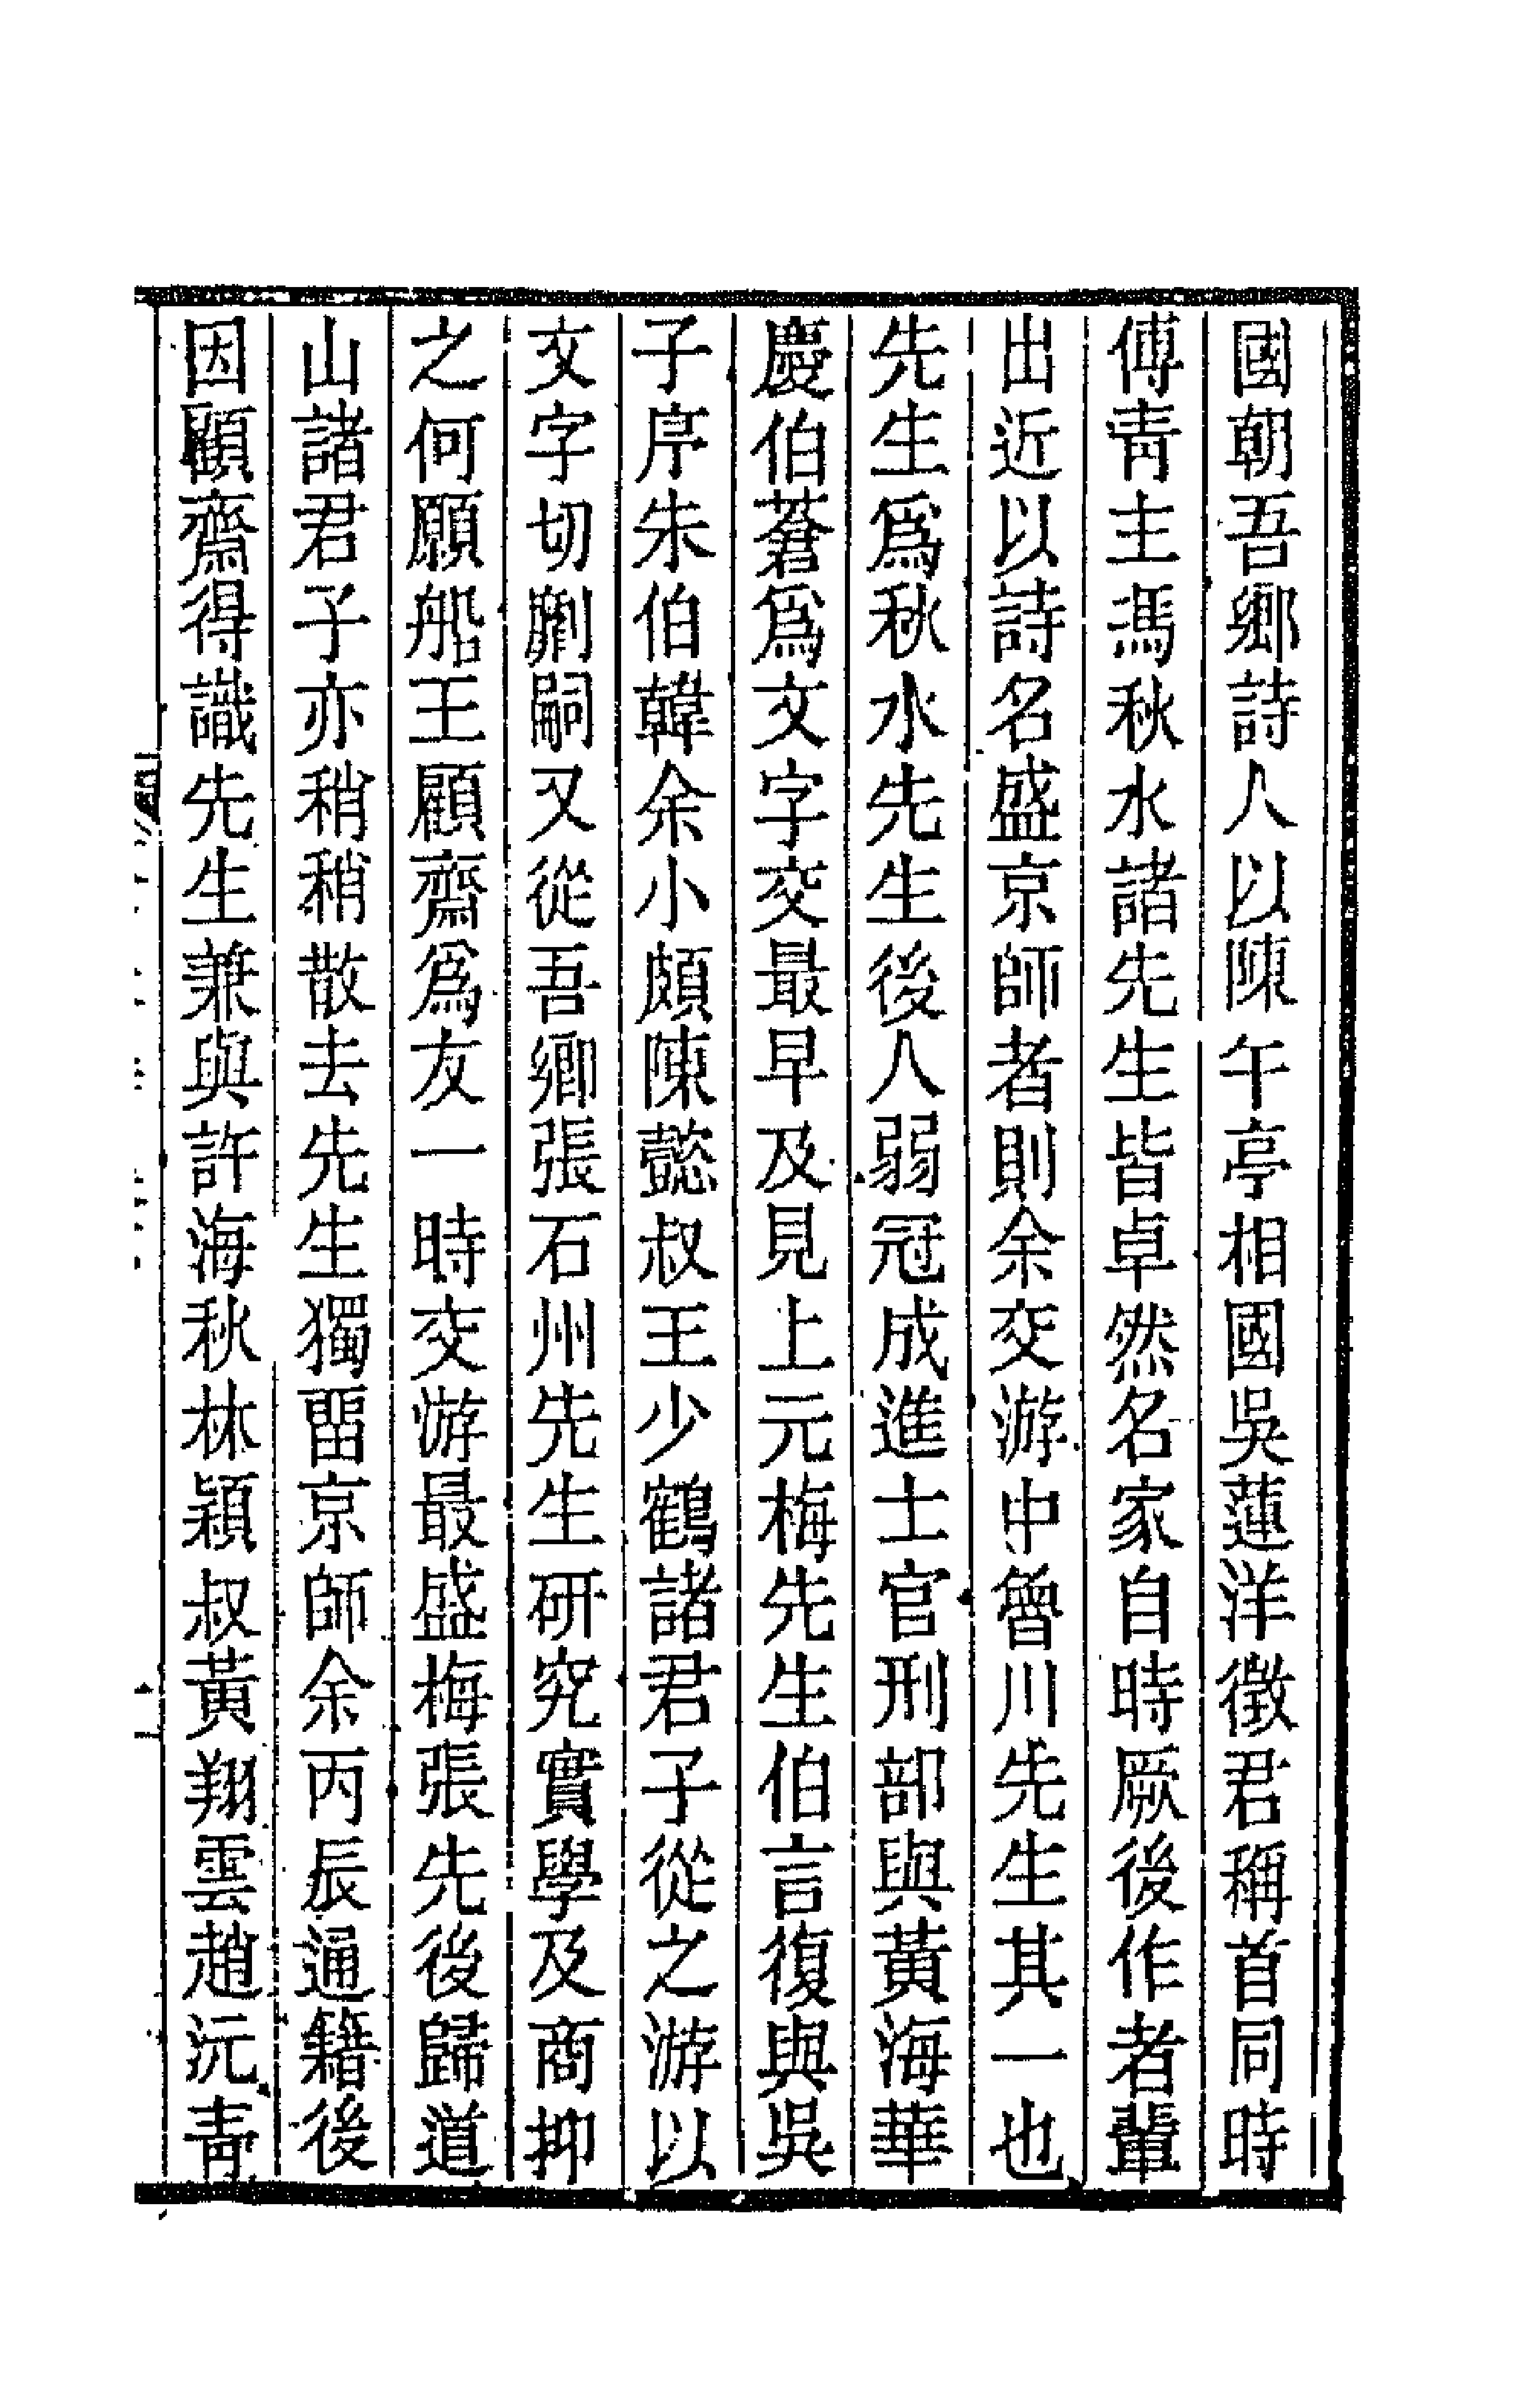 國朝吾鄉詩人以陳午亭相國吳蓮洋徵君稱首同時
傅青主馮秋水諸先生皆卓然名家自時厥後作者輩
出近以詩名盛京師者則余交游中魯川先生其一也
先生爲秋水先生後人弱冠成進士官刑部與黃海華
慶伯蒼爲文字交最早及見上元梅先生伯言復與吳
子序朱伯韓余小頗陳懿叔王少鶴諸君子從之游以
文字切劘嗣又從吾鄉張石州先生研究實學及商抑
之何願船王顧齋爲友一時交游最盛梅張先後歸道
山諸君子亦稍稍散去先生獨留京師余丙辰通籍後
因顧齋得識先生兼與許海秋林穎叔黃翔雲趙沅青